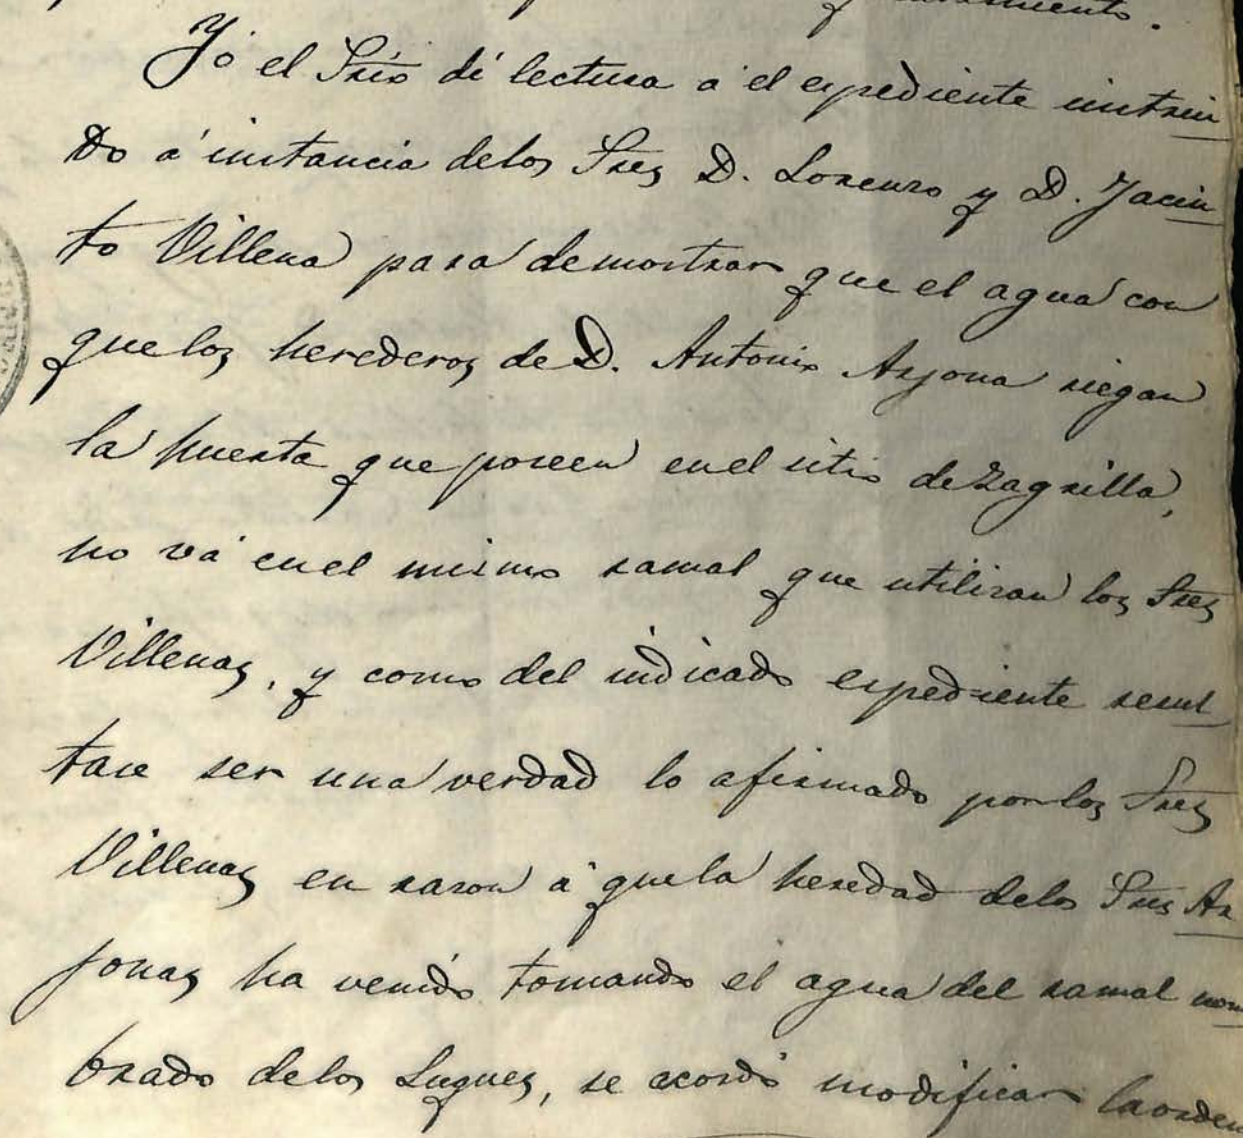 Yó el Srio dí lectura á el espediente instrui
do á instancia delos Sres D. Lorenzo y D. Jacin
to Villena para demostrar que el agua con
que los herederos de D. Antonio Arjona riegan
la huerta que poseen en el sitio de Zagrilla,
no vá en el mismo ramal que utilizan los Sres
Villenas, y como del indicado espediente resul
tase ser una verdad lo afirmado por los Sres
Villenas en razon á que la heredad delos Sres Ar
jonas ha venido tomando el agua del ramal nom
brado delos Luques, se acordó modificar la orden